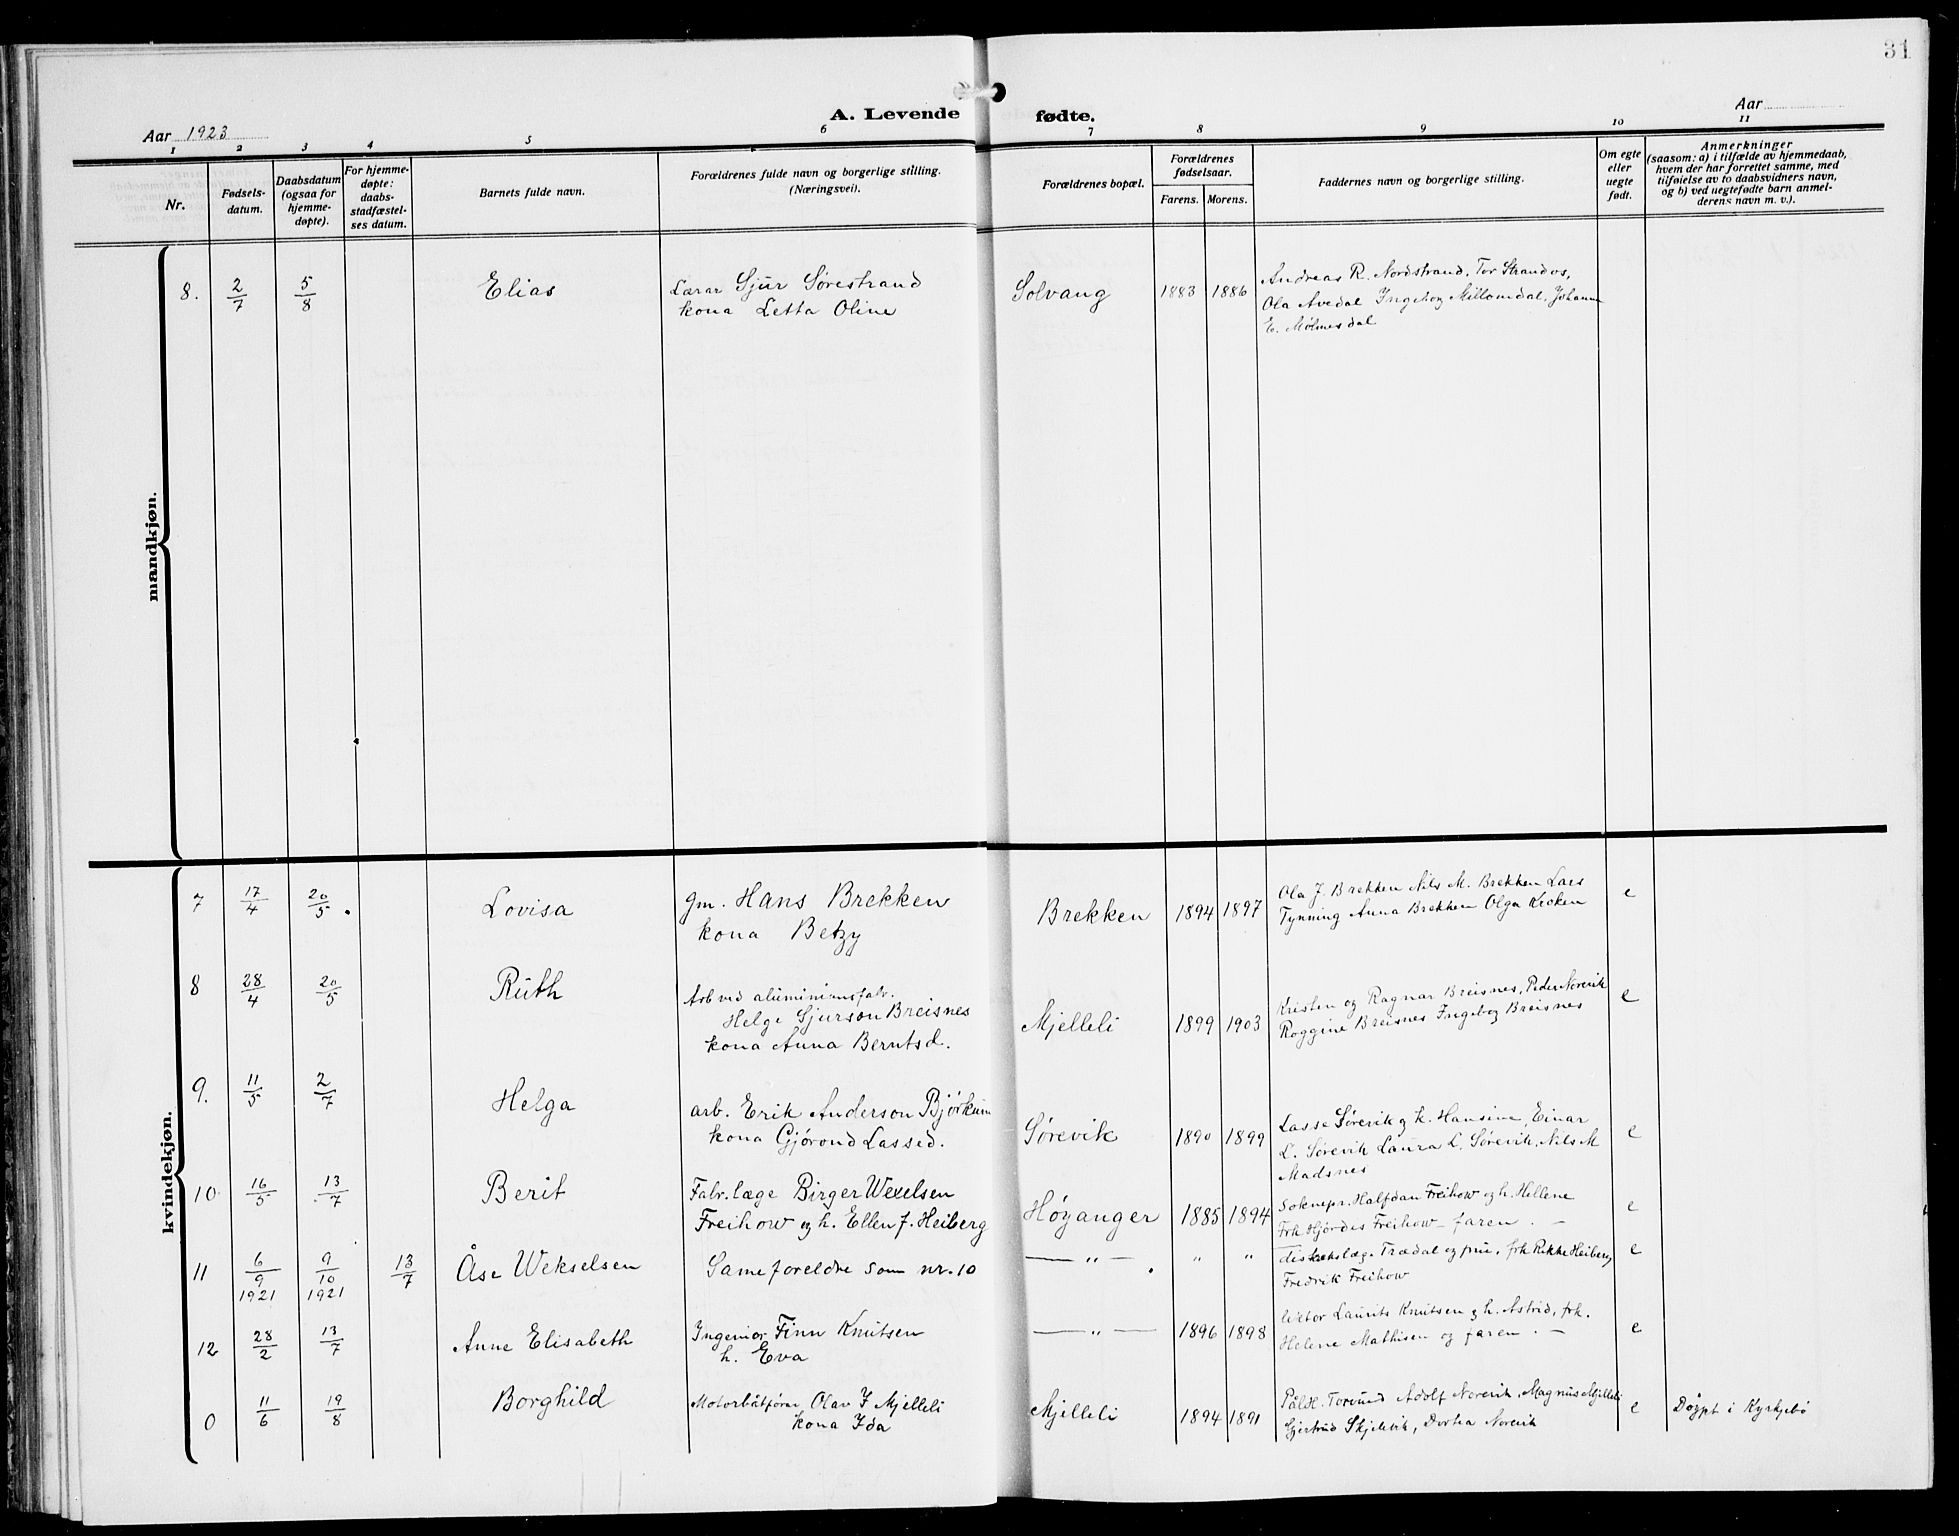 31
A. Levende fødte.
Aar 1923
Aar
1 2 3 4 5 6 7 8 9 10 11
Nr.
Fødsels-
datum.
Daabsdatum
(ogsaa for
hjemme-
døpte).
For hjemme-
døpte:
daabs-
stadfæstel-
ses datum.
Barnets fulde navn.
Forældrenes fulde navn og borgerlige stilling.
(Næringsvei).
Forældrenes bopæl.
Forældrenes
fødselsaar.
Farens. Morens.
Faddernes navn og borgerlige stilling.
Om egte
eller
uegte
født.
Anmerkninger
(saasom: a) i tilfælde av hjemmedaab,
hvem der har forrettet samme, med
tilføielse av to daabsvidners navn,
og b) ved uegtefødte barn anmel-
derens navn m. v.).
mandkjøn.
8. 2/7 5/8 Elias
Lærar Sjur Sørestrand
kona Letta Oline
Solvang 1883 1886
Andreas R. Nordstrand, Tor Strandos,
Ola Avedal Ingebog Millomdal, Johanne
E. Mølmesdal
kvindekjøn.
7 17/4 20/5 Lovisa
gm. Hans Brekken
kona Betzy
Brekken 1894 1897
Ola J. Brekken Nils M. Brekken Lars
Tynning Anna Brekken Olga Kroken
e
8 28/4 20/5 Ruth
Arb ved aluminiumsfabr.
Helge Sjurson Breisnes
kona Anna Berntsd.
Mjelleli 1899 1903
Kristen og Ragnar Breisnes, Peder Norevik
Roggine Breisnes Ingebog Breisnes
e
9. 11/5 2/7 Helga
arb. Erik Anderson Bjørkum
kona Gjørond Lassed.
Sørevik 1890 1899
Lasse Sørevik og k. Hansine, Einar
L. Sørevik Laura L. Sørevik, Nils M
Madsnes
e
10 16/5 13/7 Berit
Fabr. læge Birger Wexelsen
Freihow og h. Ellen f. Heiberg
Høyanger 1885 1894
Soknepr. Halfdan Freihow og h. Hellene
Frk Hjørdis Freihow – faren. –
e
11 6/9 1921 9/10 1921 13/7 Åse Wekselsen
Same foreldre som nr. 10
— „ — „ „
distriktslæge Trædal og frue, frk Rikke Heiberg
Fredrik Freihow
e
12 28/2 13/7 Anne Elisabeth
Ingeniør Finn Knutsen
h. Eva
— „ — 1896 1898
lektor Laurits Knutsen og h. Astrid, frk.
Helene Mathisen og faren. –
e
0 11/6 19/8 Borghild
Motorbåtførar Olav I Mjelleli
kona Ida
Mjelleli 1894 1891
Påldl. Torvund Adolf Norevik, Magnus Mjelleli
Gjertrud Skjelvik, Dortea Norevik
e
Døypt i Kyrkjebø